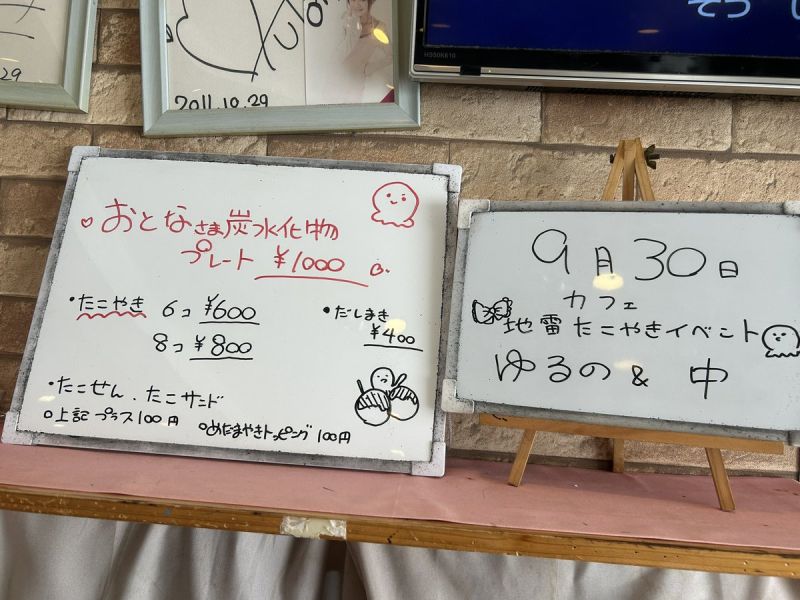 29
2011.10.29
H350K610
おとなさま炭水化物
プレート ¥1000
・たこやき 6コ ¥600
8コ ¥800
・だしまき
¥400
・たこせん.たこサンド
○上記プラス100円
○めだまやきトッピング100円
9月30日
カフェ
地雷たこやきイベント
ゆるの & 中